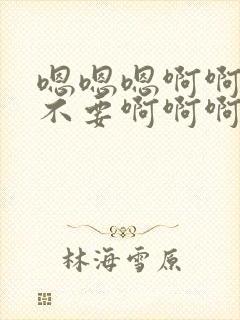 嗯嗯嗯啊啊
不要啊啊啊
林海雪原